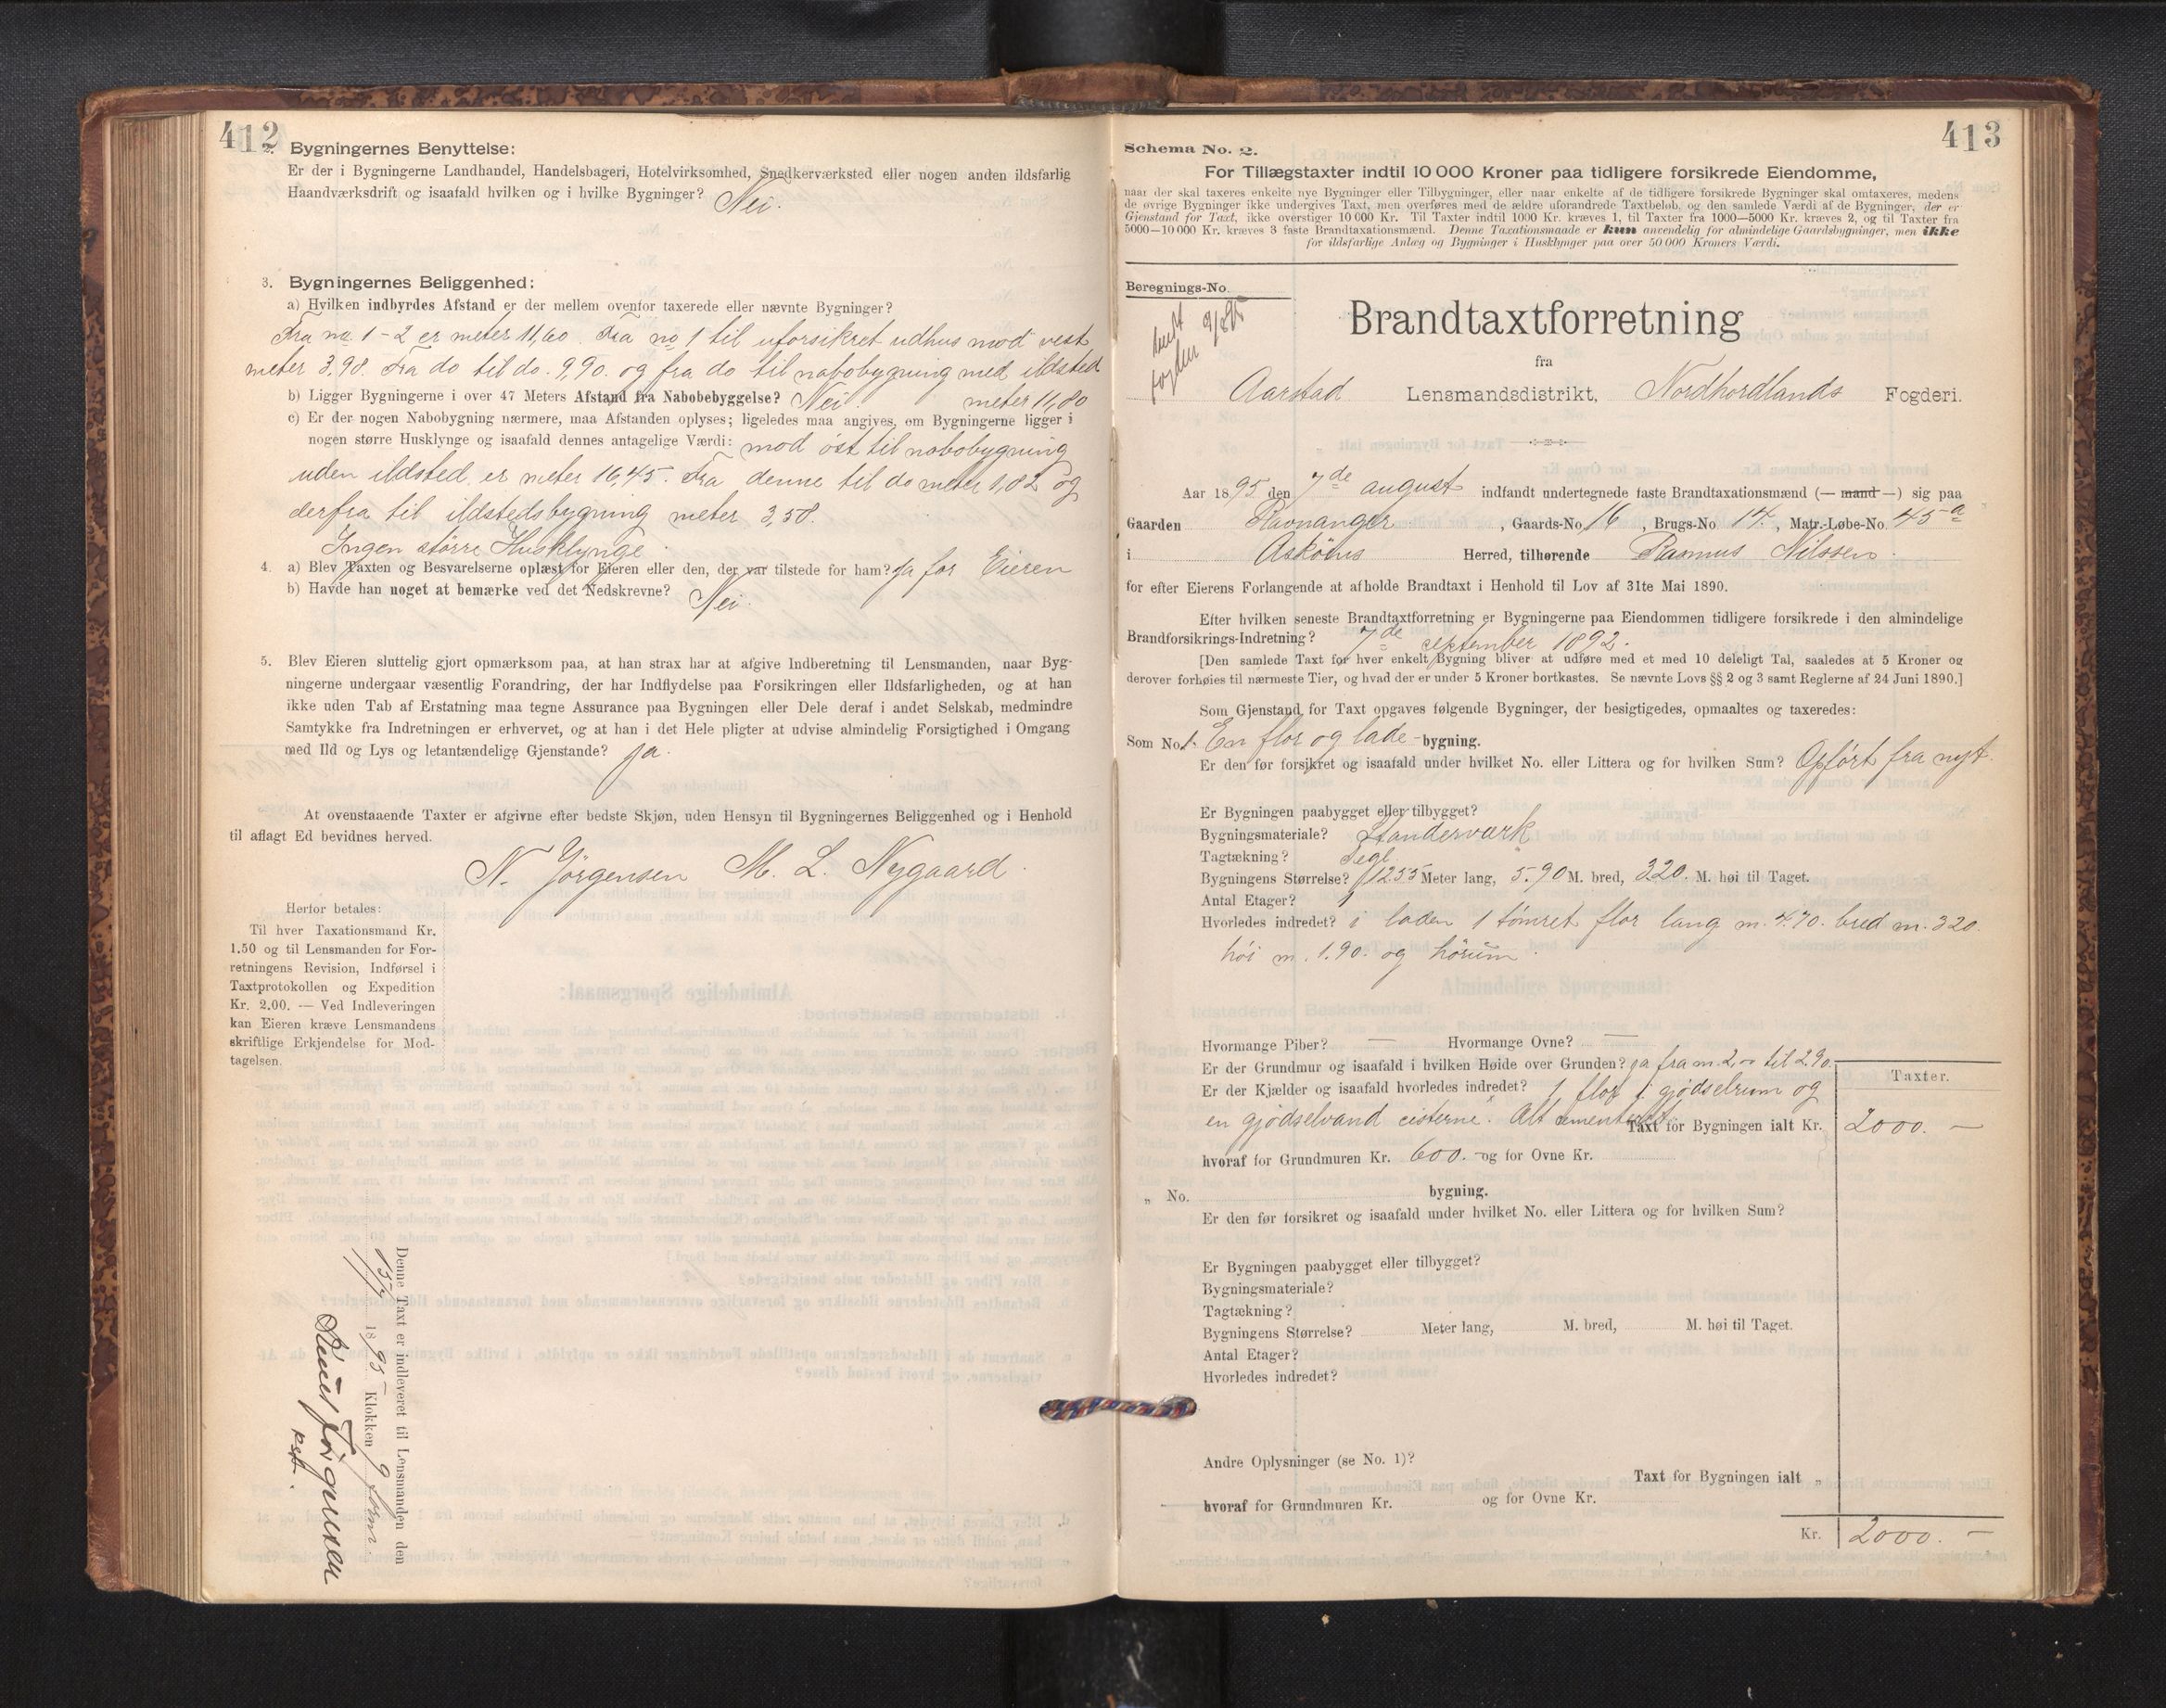 412
2. Bygningernes Benyttelse:
Er der i Bygningerne Landhandel, Handelsbageri, Hotelvirksomhed, Snedkerværksted eller nogen anden ildsfarlig
Haandværksdrift og isaafald hvilken og i hvilke Bygninger? Nei.
3. Bygningernes Beliggenhed:
a) Hvilken indbyrdes Afstand er der mellem ovenfor taxerede eller nævnte Bygninger?
Fra no 1-2 er meter 11,60. Fra no 1 til uforsikret udhus mod vest
meter 3,90. Fra do til do. 9,90. og fra do til nabobygning med ildsted
b) Ligger Bygningerne i over 47 Meters Afstand fra Nabobebyggelse? Nei. meter 11,80
c) Er der nogen Nabobygning nærmere, maa Afstanden oplyses; ligeledes maa angives, om Bygningerne ligger i
nogen større Husklynge og isaafald dennes antagelige Værdi: mod öst til nabobygning
uden ildsted er meter 16,45. Fra denne til do meter 1,82 og
derfra til ildstedsbygning meter 3,50.
Ingen større Husklynge.
4. a) Blev Taxten og Besvarelserne oplæst for Eieren eller den, der var tilstede for ham? Ja for Eieren
b) Havde han noget at bemærke ved det Nedskrevne? Nei.
5. Blev Eieren sluttelig gjort opmærksom paa, at han strax har at afgive Indberetning til Lensmanden, naar Byg-
ningerne undergaar væsentlig Forandring, der har Indflydelse paa Forsikringen eller Ildsfarligheden, og at han
ikke uden Tab af Erstatning maa tegne Assurance paa Bygningen eller Dele deraf i andet Selskab, medmindre
Samtykke fra Indretningen er erhvervet, og at han i det Hele pligter at udvise almindelig Forsigtighed i Omgang
med Ild og Lys og letantændelige Gjenstande? ja.
At ovenstaaende Taxter er afgivne efter bedste Skjøn, uden Hensyn til Bygningernes Beliggenhed og i Henhold
til aflagt Ed bevidnes herved.
N. Jörgensen M. L. Nygaard.
Herfor betales:
Til hver Taxationsmand Kr.
1.50 og til Lensmanden for For-
retningens Revision, Indførsel i
Taxtprotokollen og Expedition
Kr. 2.00. — Ved Indleveringen
kan Eieren kræve Lensmandens
skriftlige Erkjendelse for Mod-
tagelsen.
Denne Taxt er indleveret til Lensmanden den
1895 Klokken 9 form.
413
Schema No. 2.
For Tillægstaxter indtil 10 000 Kroner paa tidligere forsikrede Eiendomme,
naar der skal taxeres enkelte nye Bygninger eller Tilbygninger, eller naar enkelte af de tidligere forsikrede Bygninger skal omtaxeres, medens
de øvrige Bygninger ikke undergives Taxt, men overføres med de ældre uforandrede Taxtbeløb, og den samlede Værdi af de Bygninger, der er
Gjenstand for Taxt, ikke overstiger 10 000 Kr. Til Taxter indtil 1000 Kr. kræves 1, til Taxter fra 1000—5000 Kr. kræves 2, og til Taxter fra
5000—10 000 Kr. kræves 3 faste Brandtaxationsmænd. Denne Taxationsmaade er kun anvendelig for almindelige Gaardsbygninger, men ikke
for ildsfarlige Anlæg og Bygninger i Husklynger paa over 50 000 Kroners Værdi.
Beregnings-No.
Brandtaxtforretning
fra
Aarstad Lensmandsdistrikt, Nordhordlands Fogderi.
Aar 1895 den 7de august indfandt undertegnede faste Brandtaxationsmænd (— mand —) sig paa
Gaarden Ravnanger, Gaards-No. 16, Brugs-No. 14., Matr.-Løbe-No. 45a
i Asköens Herred, tilhørende Rasmus Nilssen.
for efter Eierens Forlangende at afholde Brandtaxt i Henhold til Lov af 31te Mai 1890.
Efter hvilken seneste Brandtaxtforretning er Bygningerne paa Eiendommen tidligere forsikrede i den almindelige
Brandforsikrings-Indretning? 7de september 1892.
[Den samlede Taxt for hver enkelt Bygning bliver at udføre med et med 10 deleligt Tal, saaledes at 5 Kroner og
derover forhøies til nærmeste Tier, og hvad der er under 5 Kroner bortkastes. Se nævnte Lovs §§ 2 og 3 samt Reglerne af 24 Juni 1890.]
Som Gjenstand for Taxt opgaves følgende Bygninger, der besigtigedes, opmaaltes og taxeredes:
Som No. 1. En flor og lade-bygning.
Er den før forsikret og isaafald under hvilket No. eller Littera og for hvilken Sum? Opfört fra nyt.
Er Bygningen paabygget eller tilbygget?
Bygningsmateriale? Standerværk
Tagtækning? Tegl
Bygningens Størrelse? 12.55 Meter lang, 5.90 M. bred, 3.20. M. høi til Taget.
Antal Etager? 1
Hvorledes indredet? i laden 1 tömret flor lang m. 4.70. bred m. 3.20.
höi m. 1.90. og hörum.
Hvormange Piber? — Hvormange Ovne? —
Er der Grundmur og isaafald i hvilken Høide over Grunden? ja fra m. 2,00 til 2.90.
Er der Kjælder og isaafald hvorledes indredet? 1 flor 1 gjödselrum og
en gjödselvand cisterne. Alt cementeret. Taxt for Bygningen ialt Kr.
Taxter.
2000. —
hvoraf for Grundmuren Kr. 600. - og for Ovne Kr.
„ No. bygning.
Er den før forsikret og isaafald under hvilket No. eller Littera og for hvilken Sum?
Er Bygningen paabygget eller tilbygget?
Bygningsmateriale?
Tagtækning?
Bygningens Størrelse? Meter lang, M. bred, M. høi til Taget.
Antal Etager?
Hvorledes indredet?
Andre Oplysninger (se No. 1)?
Taxt for Bygningen ialt „
hvoraf for Grundmuren Kr. og for Ovne Kr.
Kr. 2000. —